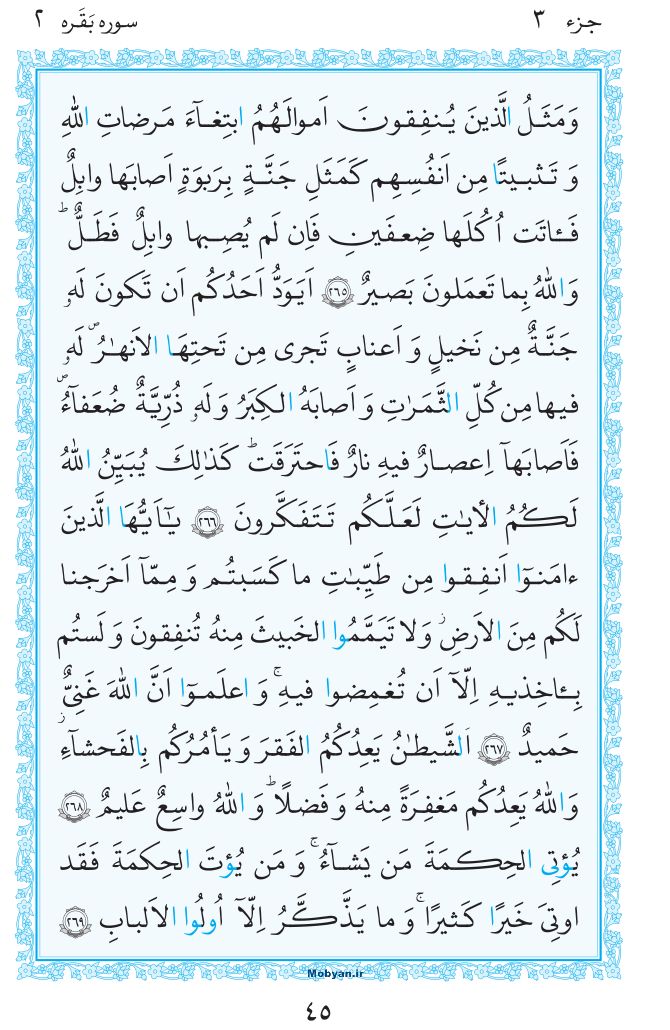 جزء ۳
سوره بَقَره ۲
وَمَثَلُ الَّذینَ یُنفِقونَ اَموالَهُمُ ابتِغـآءَ مَرضاتِ اللّٰهِ
وَ تَثبیتًا مِن اَنفُسِهِم کَمَثَلِ جَنَّةٍ بِرَبوَةٍ اَصابَها وابِلٌ
فَـٔاتَت اُکُلَها ضِعفَینِ فَاِن لَم یُصِبها وابِلٌ فَطَلٌّ ؕ
وَاللّٰهُ بِما تَعمَلونَ بَصیرٌ ﴿۲۶۵﴾ اَیَوَدُّ اَحَدُکُم اَن تَکونَ لَهٗ
جَنَّةٌ مِن نَخیلٍ وَ اَعنابٍ تَجری مِن تَحتِهَا الاَنهٰرُ لَهٗ
فیها مِن کُلِّ الثَّمَرٰتِ وَ اَصابَهُ الکِبَرُ وَ لَهٗ ذُرِّیَّةٌ ضُعَفآءُ
فَاَصابَهآ اِعصارٌ فیهِ نارٌ فَاحتَرَقَت ؕ کَذٰلِکَ یُبَیِّنُ اللّٰهُ
لَکُمُ الأیٰتِ لَعَلَّکُم تَتَفَکَّرونَ ﴿۲۶۶﴾ یـٰٓاَیُّهَا الَّذینَ
ءامَنوٓا اَنفِقوا مِن طَیِّبٰتِ ما کَسَبتُم وَ مِمّآ اَخرَجنا
لَکُم مِنَ الاَرضِ وَلا تَیَمَّمُوا الخَبیثَ مِنهُ تُنفِقونَ وَ لَستُم
بِـٔاخِذیهِ اِلّآ اَن تُغمِضوا فیهِ ۚ وَ اعلَموٓا اَنَّ اللّٰهَ غَنِیٌّ
حَمیدٌ ﴿۲۶۷﴾ اَلشَّیطٰنُ یَعِدُکُمُ الفَقرَ وَ یَأمُرُکُم بِالفَحشآءِ
وَاللّٰهُ یَعِدُکُم مَغفِرَةً مِنهُ وَ فَضلًا ؕ وَ اللّٰهُ واسِعٌ عَلیمٌ ﴿۲۶۸﴾
یُؤتِی الحِکمَةَ مَن یَشآءُ ۚ وَ مَن یُؤتَ الحِکمَةَ فَقَد
اوتِیَ خَیرًا کَثیرًا ۚ وَ ما یَذَّکَّرُ اِلّآ اُولُوا الاَلبابِ ﴿۲۶۹﴾
Mobyan.ir
٤٥